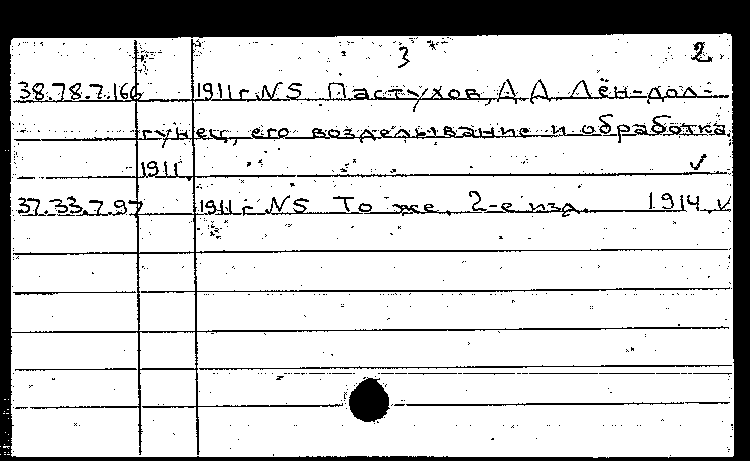 3 2
38.78.7.166 1911 г. N5 Пастухов, А Д Лён-дол-
гунец, его возделывание и обработка
1911. ✓
37.33.7.97 1911 г. N5 То же. 2-е изд. 1914. ✓